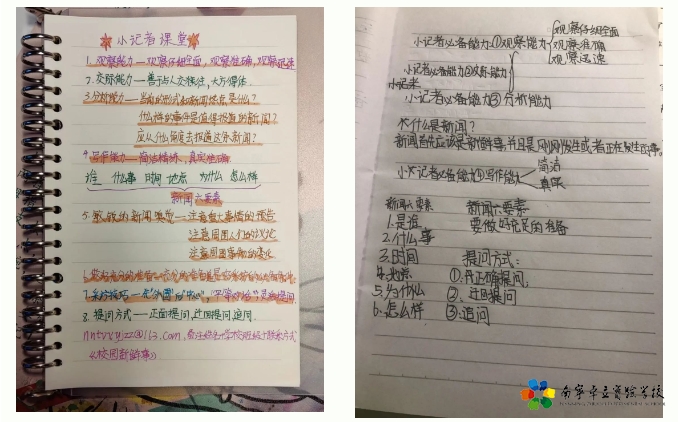 小记者课堂
1.观察能力——观察仔细全面，观察准确，观察迅速
2.交际能力——善于与人交往，大方得体
3.分析能力——当前的形式和新闻热点是什么？
什么样的事件是值得报道的新闻？
应从什么角度去报道这条新闻？
4.写作能力——简洁精练，真实准确
谁 什么事 时间 地点 为什么 怎么样
新闻六要素
5.敏锐的新闻嗅觉——注意重大事情的预告
注意周围人们的议论
注意周围事物的变化
6.
7.采访技巧——
8.提问方式——正面提问，迂回提问，追问
《校园新鲜事》
小记者必备能力①观察能力
观察仔细全面
观察准确
观察迅速
小记者必备能力②交际能力
小记者
小记者必备能力③分析能力
什么是新闻？
新闻首先应该是新鲜事，并且是刚刚发生或者正在发生的事。
小记者必备能力④写作能力
简洁
真实
新闻六要素 新闻六要素
1.是谁 要做好充足的准备
2.什么事
3.时间 提问方式：
4.地点 ①.正面提问
5.为什么 ②.迂回提问
6.怎么样 ③.追问
南宁卓立实验学校